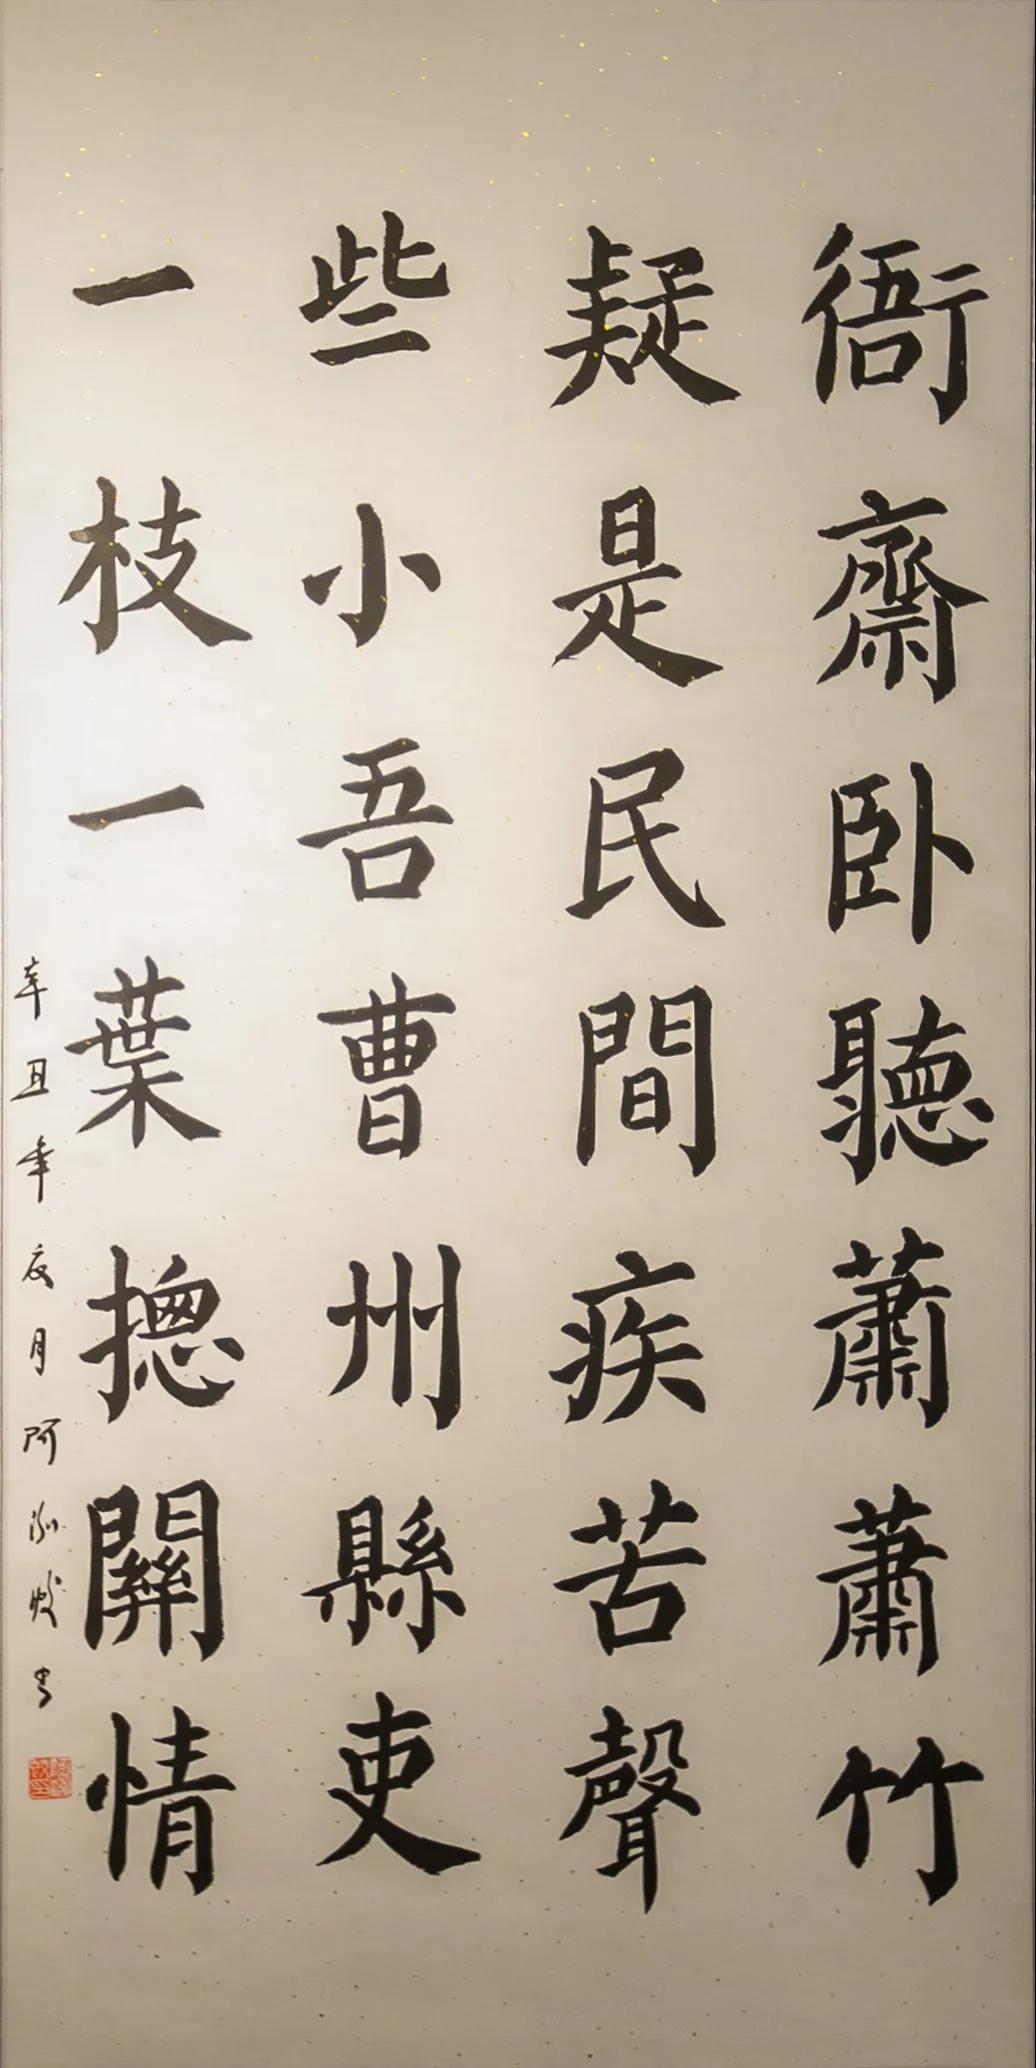 衙齋卧聽蕭蕭竹
疑是民間疾苦聲
些小吾曹州縣吏
一枝一葉摠關情
辛丑年